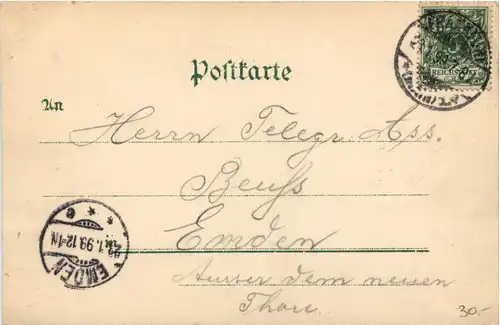 Postkarte
REICHSPOST
An
Herrn Telegr. Ass.
Beuss
Emden
Ausser dem neuen
Thore.
EMDEN
1.99.12-1N.
* * c
30.-